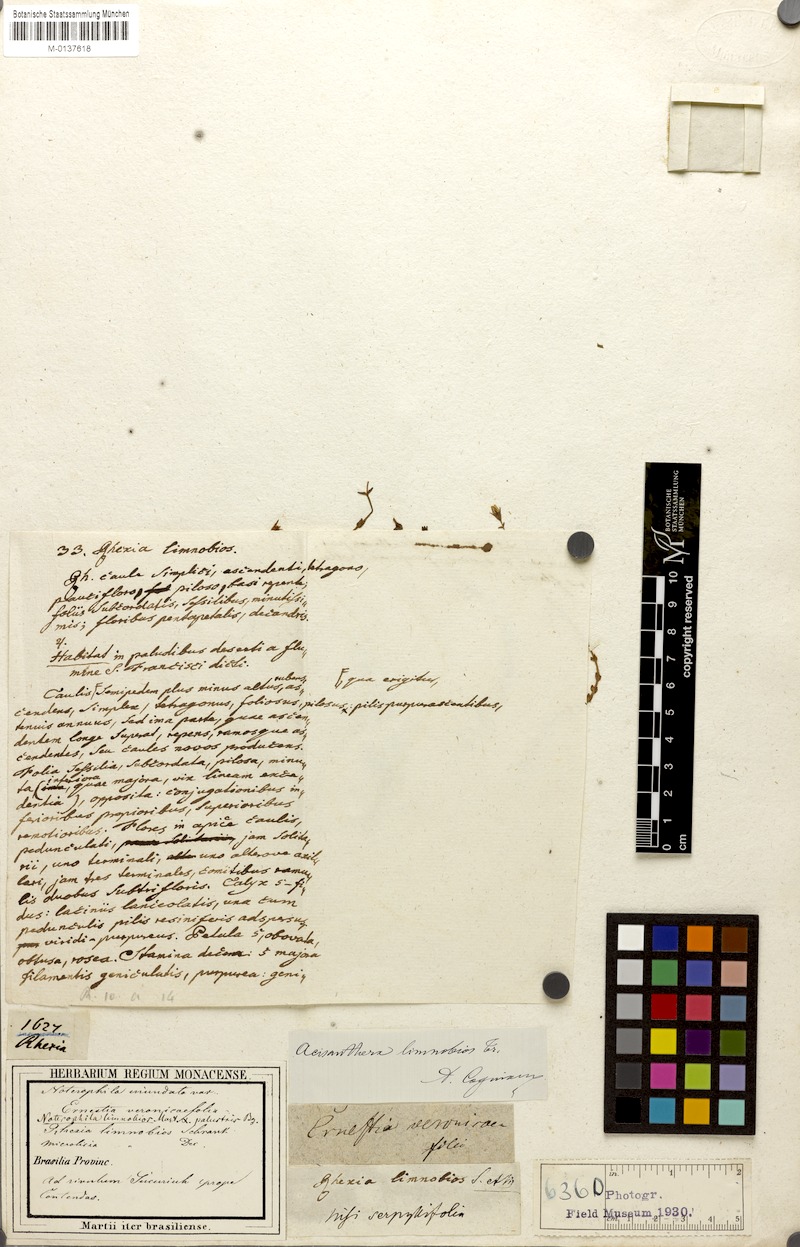 Botanische Staatssammlung München
M-0137618
33. Rhexia limnobios.
Rh. caule simplici, ascendenti, tetragono,
paucifloro, piloso, basi repente;
foliis subcordatis, sessilibus, minutissi-
mis; floribus pentapetalis, decandris.
Habitat in paludibus deserti a flu-
mine S. Francisci dicti.
Caulis semipedem plus minus altus, rubens, as-
qua erigitur,
cendens, simplex, tetragonus, foliosus, pilosus: pilis purpurascentibus,
tenuis annuus, sed ima parte, quae ascen-
dentem longe superat, repens, ramosque as-
cendentes, seu caules novos producens.
Folia sessilia, subcordata, pilosa, minu-
ta (inferiora, quae majora, vix lineam exce-
dentia), opposita: conjugationibus in-
ferioribus propioribus, superioribus
remotioribus. Flores in apice caulis,
pedunculati, jam solita-
rii, uno terminali, uno alterove axil-
lari, jam tres terminales, comitibus ramu-
lis duobus subtrifloris. Calyx 5-fi-
dus: laciniis lanceolatis, una cum
pedunculis pilis resiniferis adspersus
viridi-purpureus. Petala 5, obovata,
obtusa, rosea. Stamina decem: 5 majora
filamentis geniculatis, purpurea: geni-
1627
Rhexia
HERBARIUM REGIUM MONACENSE.
Noterophila inundata var.
Ernestia veronicaefolia
Noterophila limnobios Mart. & palustris
Rhexia limnobios Schrank
Microlicia " Dec.
Brasilia Provinc.
Ad rivulum Sucuriuh prope
Contendas.
Martii iter brasiliense.
Acisanthera limnobios Tr.
A. Cogniaux
Ernestia veronicae-
folia
Rhexia limnobios S. et M
nisi serpyllifolia
6360
Photogr.
Field Museum 1930.
in. 1 2
cm 1 2 3 4 5
BOTANISCHE
STAATSSAMMLUNG
MÜNCHEN
copyright reserved
0 1 2 3 4 5 6 7 8 9 10
cm